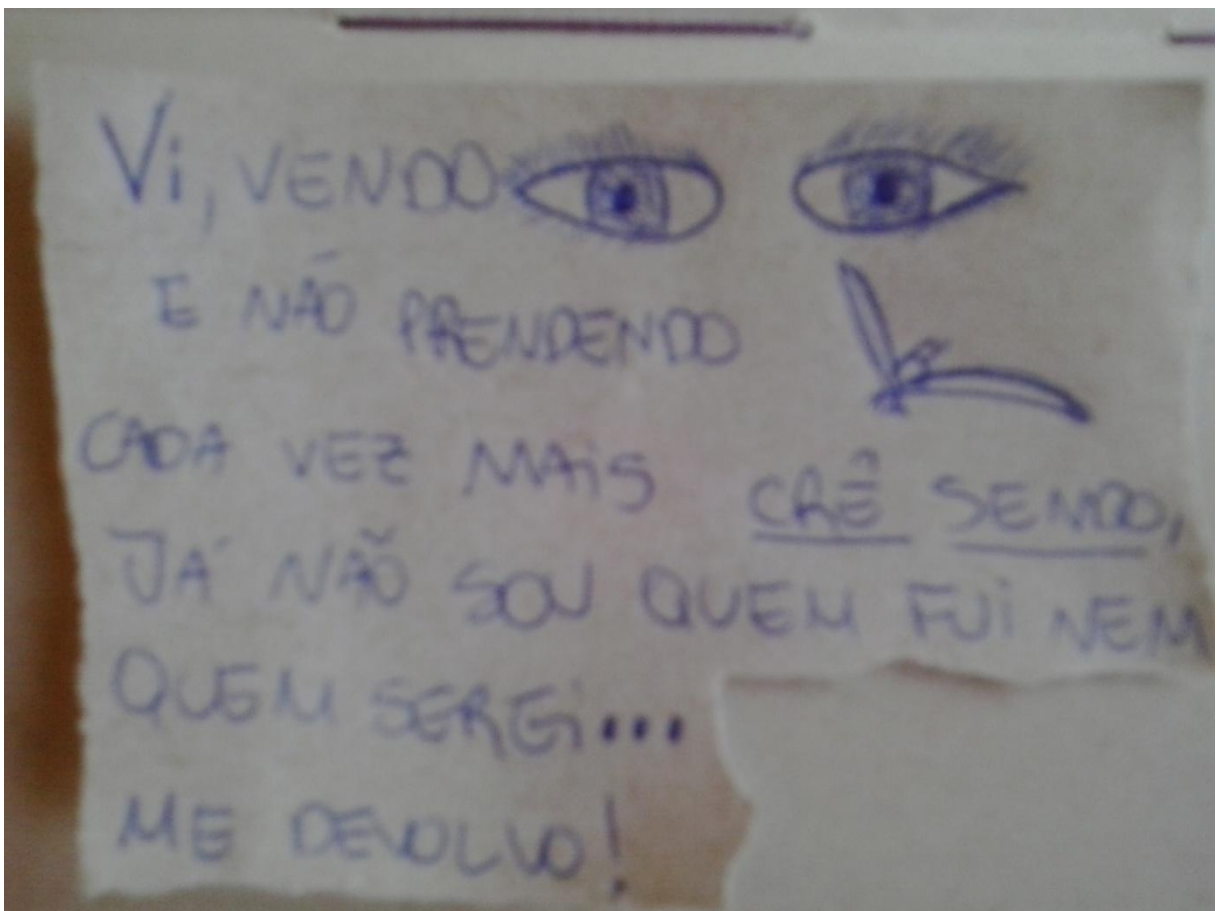 Vi, VENDO
E NÃO PRENDENDO
CADA VEZ MAIS CRÊ SENDO,
JÁ NÃO SOU QUEM FUI NEM
QUEM SEREI...
ME DEVOLVO!